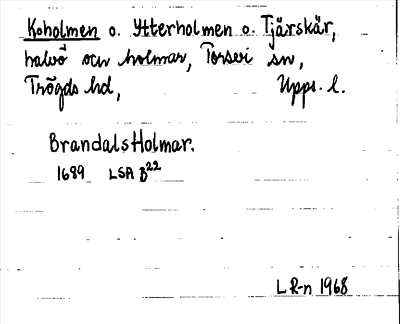 Koholmen o. Ytterholmen o. Tjärskär,
halvö och holmar, Torsvi sn,
Trögds hd, Upps. l.
Brandals Holmar.
1689 LSA B22
L R-n 1968